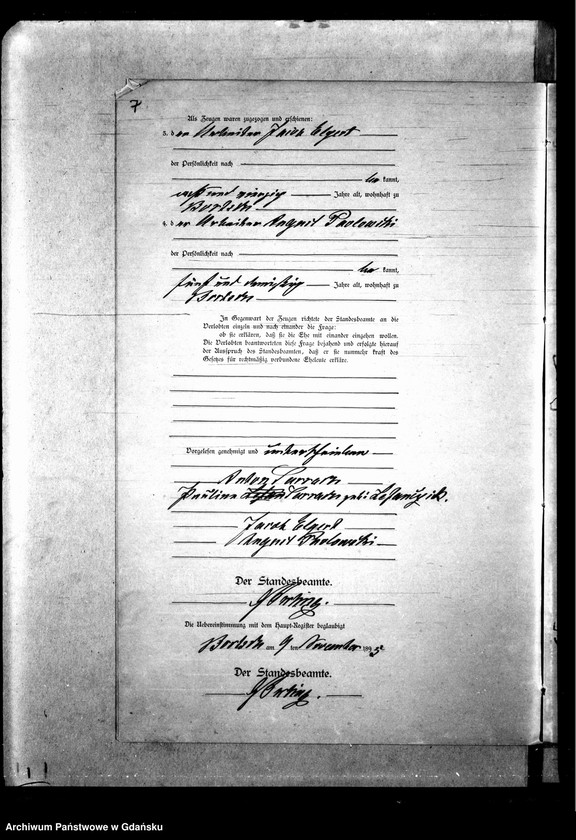 7
Als Zeugen waren zugezogen und erschienen:
3. der Arbeiter Jacob Elgert
der Persönlichkeit nach
be kannt,
acht und vierzig Jahre alt, wohnhaft zu
4. der Arbeiter August
der Persönlichkeit nach
be kannt,
fünf und dreißig Jahre alt, wohnhaft zu
In Gegenwart der Zeugen richtete der Standesbeamte an die
Verlobten einzeln und nach einander die Frage:
ob sie erklären, daß sie die Ehe mit einander eingehen wollen.
Die Verlobten beantworteten diese Frage bejahend und erfolgte hierauf
der Ausspruch des Standesbeamten, daß er sie nunmehr kraft des
Gesetzes für rechtmäßig verbundene Eheleute erkläre.
Vorgelesen genehmigt und unterschrieben
Anton
Pauline geb.
Jacob Elgert
August
Der Standesbeamte.
Die Uebereinstimmung mit dem Haupt-Register beglaubigt
am 9 ten November 1895
Der Standesbeamte.
Archiwum Państwowe w Gdańsku